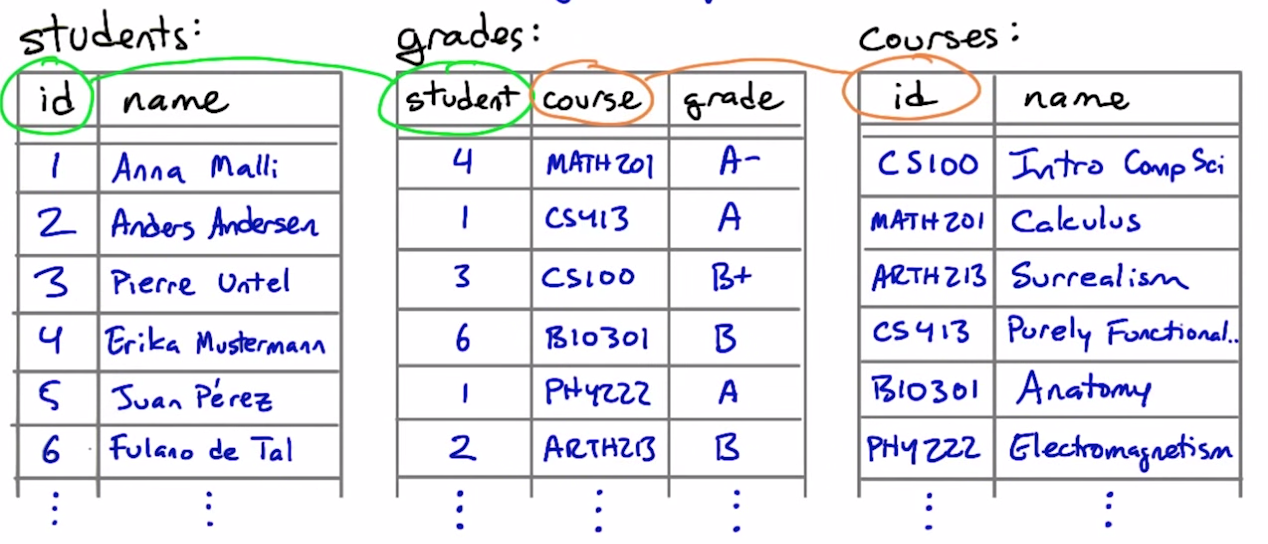 students:
id name
1 Anna Malli
2 Anders Andersen
3 Pierre Untel
4 Erika Mustermann
5 Juan Pérez
6 Fulano de Tal
grades:
student course grade
4 MATH201 A-
1 CS413 A
3 CS100 B+
6 BIO301 B
1 PHY222 A
2 ARTH213 B
courses:
id name
CS100 Intro Comp Sci
MATH201 Calculus
ARTH213 Surrealism
CS413 Purely Functional..
BIO301 Anatomy
PHY222 Electromagnetism